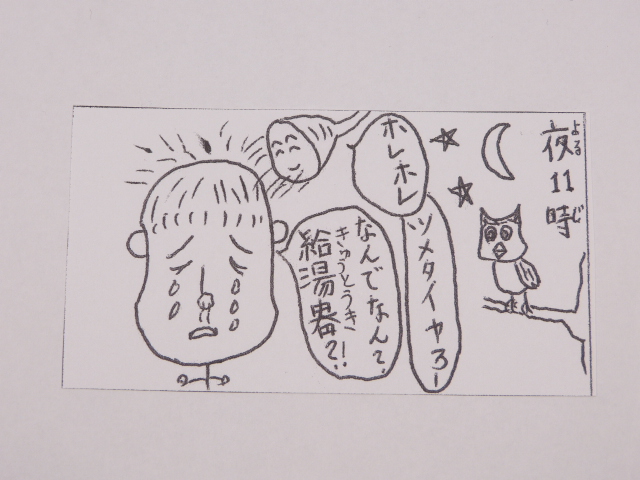 夜11時
よる
じ
ホレホレ
ツメタイヤろー
なんでなんで
給湯器?!
きゅうとうき